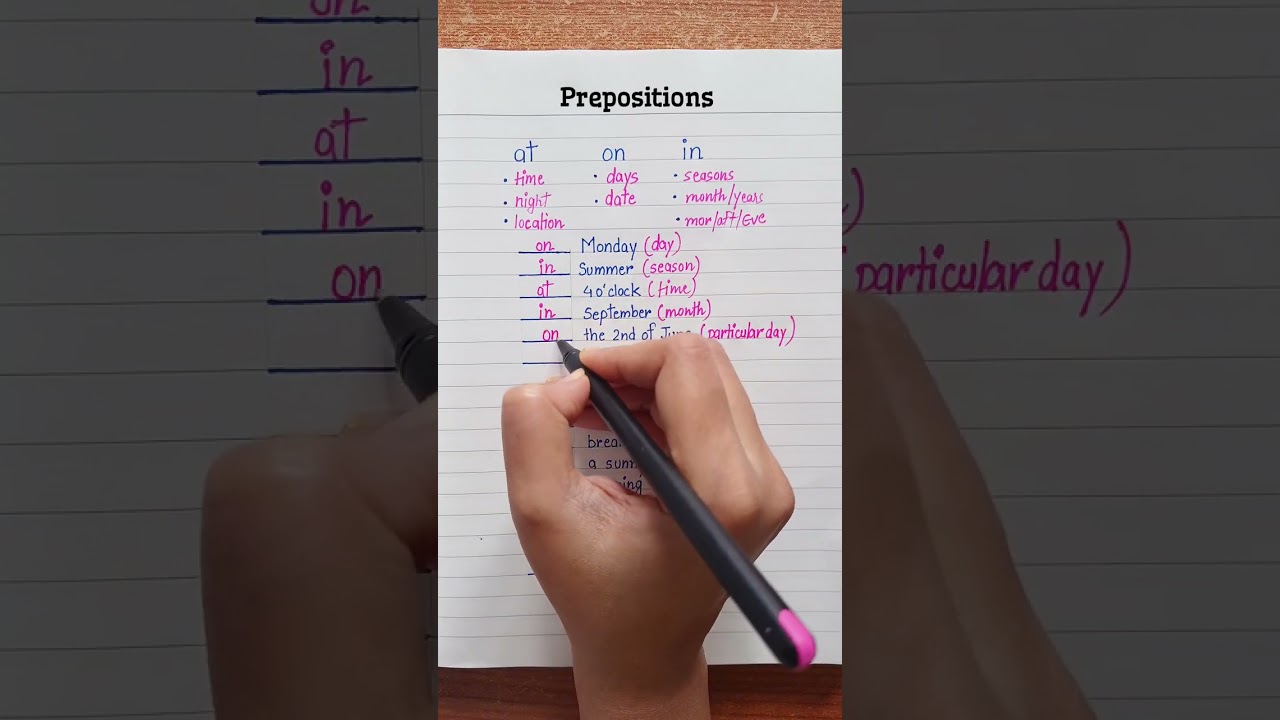 Prepositions
at on in
• time • days • seasons
• night • date • month/years
• location • mor/aft/Eve
on Monday (day)
in Summer (season)
at 4 o'clock (time)
in September (month)
on the 2nd of June (particular day)
a
on
in
at
in
on
particular day)